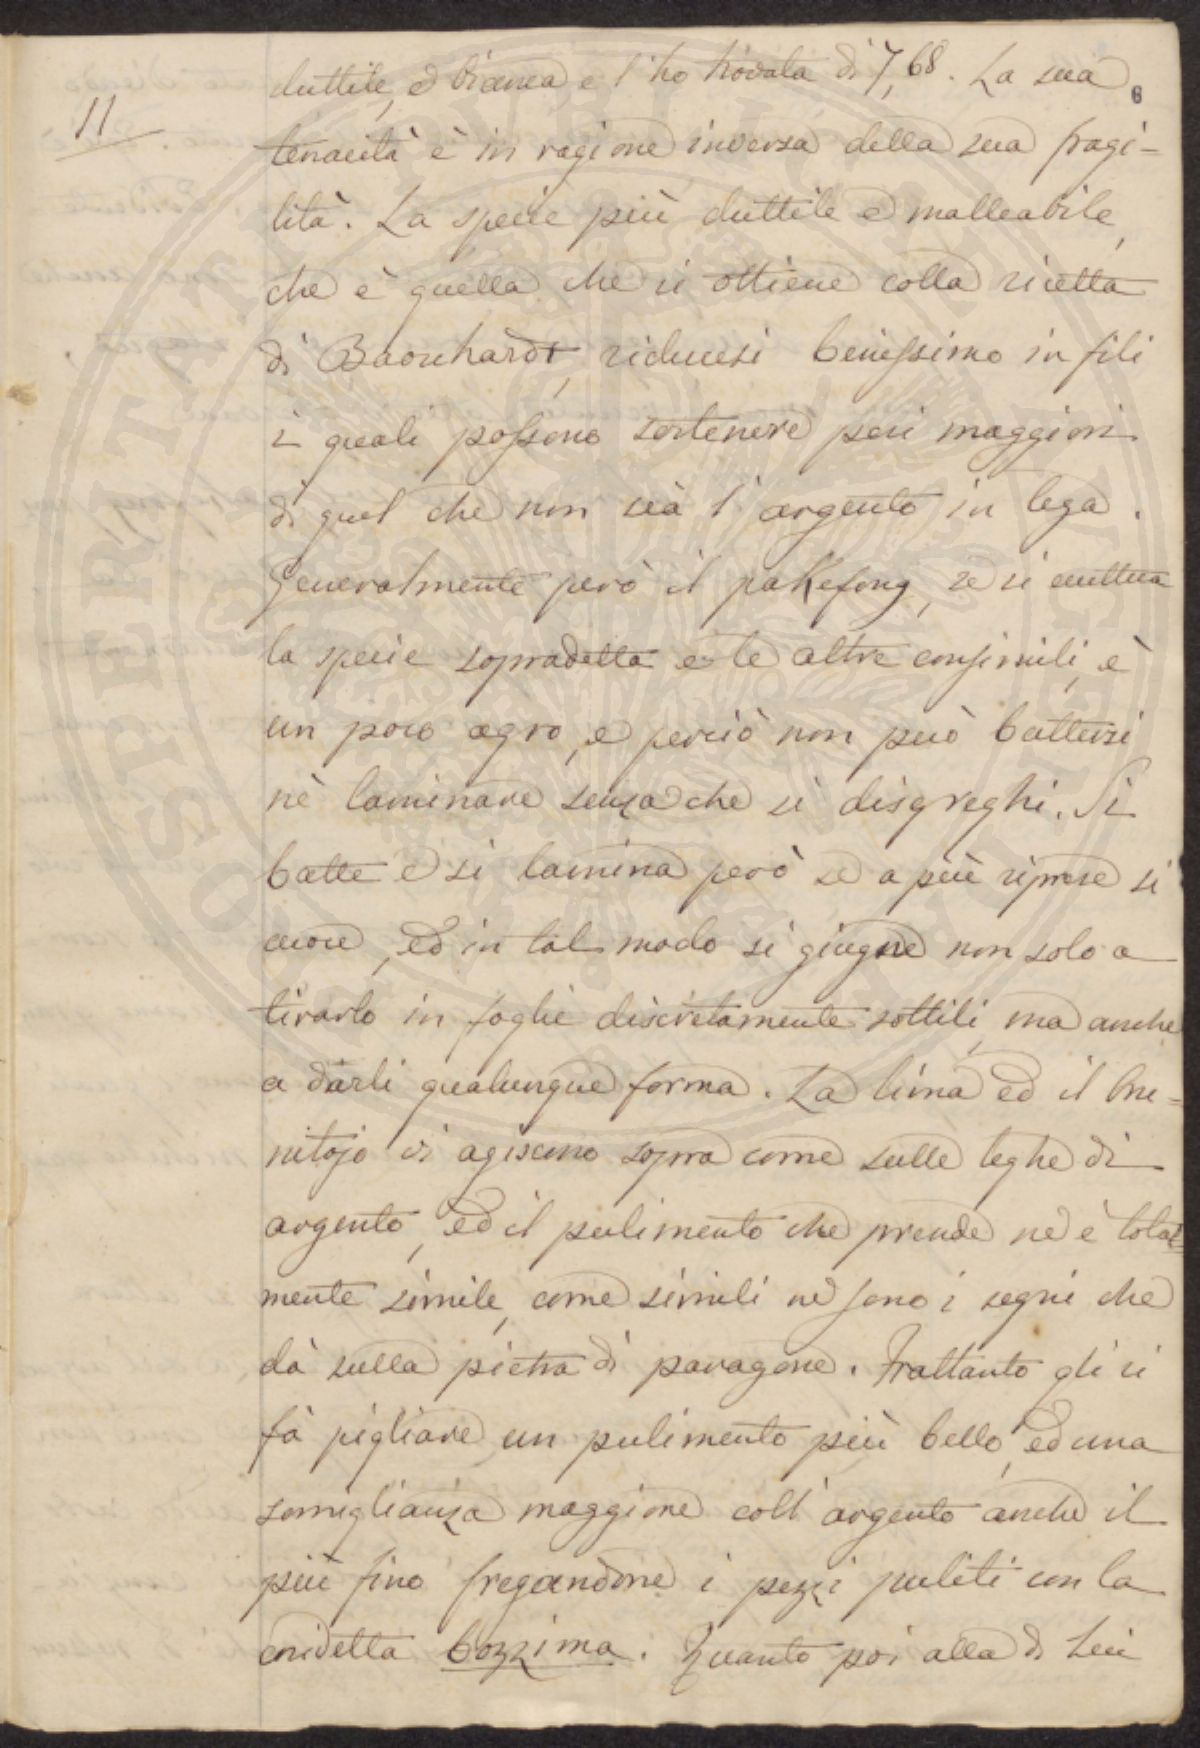 11
6
duttile, e bianca e l'ho trovata di 7,68. La sua
tenacità è in ragione inversa della sua fragi-
lità. La specie più duttile e malleabile,
che è quella che si ottiene colla ricetta
di riducesi benissimo in fili
i quali possono sostenere pesi maggiori
di quel che non sia l'argento in lega.
Generalmente però il pakefong, se si eccettua
la specie sopradetta e le altre consimili, è
un poco agro, e perciò non può battersi
nè laminare senza che si disgreghi. Si
batte e si lamina però se a più riprese si
cuoce, ed in tal modo si giugne non solo a
tirarlo in foglie discretamente sottili, ma anche
a darli qualunque forma. La lima ed il bru-
nitojo vi agiscono sopra come sulle leghe di
argento, ed il pulimento che prende ne è total-
mente simile, come simili ne sono i segni che
dà sulla pietra di paragone. Frattanto gli si
fà pigliare un pulimento più bello, ed una
somiglianza maggiore coll'argento anche il
più fino fregandone i pezzi puliti con la
cosidetta bozzima. Quanto poi alla di lui